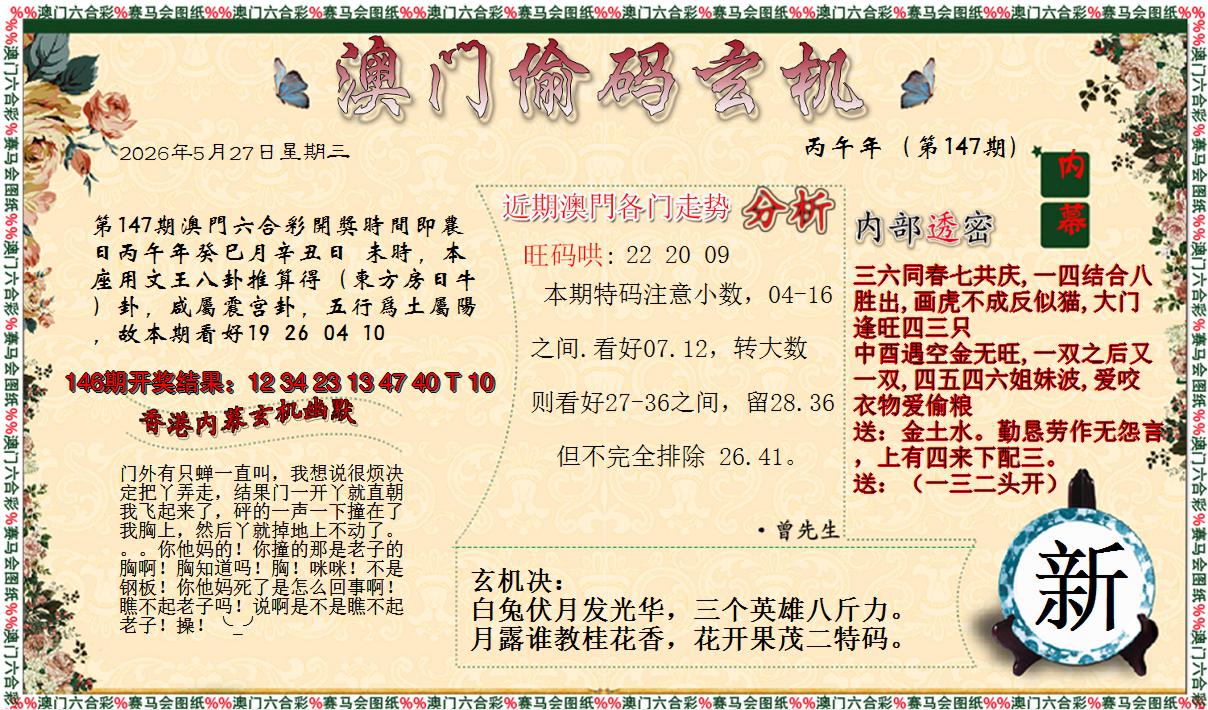 %%澳门六合彩%赛马会图纸%%澳门六合彩%赛马会图纸%%澳门六合彩%赛马会图纸%%澳门六合彩%赛马会图纸%%澳门六合彩%赛马会图纸%%澳门六合彩%赛马会图纸%%
澳门偷码玄机
2026年5月27日星期三
丙午年（第147期）
内
幕
第147期澳門六合彩開獎時間即農
日丙午年癸巳月辛丑日 未時，本
座用文王八卦推算得（東方房日牛
）卦，咸屬震宫卦，五行爲土屬陽
，故本期看好19 26 04 10
146期开奖结果：12 34 23 13 47 40 T 10
香港内幕玄机幽默
门外有只蝉一直叫，我想说很烦决
定把丫弄走，结果门一开丫就直朝
我飞起来了，砰的一声一下撞在了
我胸上，然后丫就掉地上不动了。
。。你他妈的！你撞的那是老子的
胸啊！胸知道吗！胸！咪咪！不是
钢板！你他妈死了是怎么回事啊！
瞧不起老子吗！说啊是不是瞧不起
老子！操！╰_╯
近期澳門各门走势 分析
旺码哄: 22 20 09
本期特码注意小数，04-16
之间.看好07.12，转大数
则看好27-36之间，留28.36
但不完全排除 26.41。
·曾先生
内部透密
三六同春七共庆,一四结合八
胜出,画虎不成反似猫,大门
逢旺四三只
中酉遇空金无旺,一双之后又
一双,四五四六姐妹波,爱咬
衣物爱偷粮
送：金土水。勤恳劳作无怨言
，上有四来下配三。
送：（一三二头开）
玄机决：
白兔伏月发光华，三个英雄八斤力。
月露谁教桂花香，花开果茂二特码。
新
%%澳门六合彩%赛马会图纸%%澳门六合彩%赛马会图纸%%澳门六合彩%赛马会图纸%%澳门六合彩%赛马会图纸%%澳门六合彩%赛马会图纸%%澳门六合彩%赛马会图纸%%